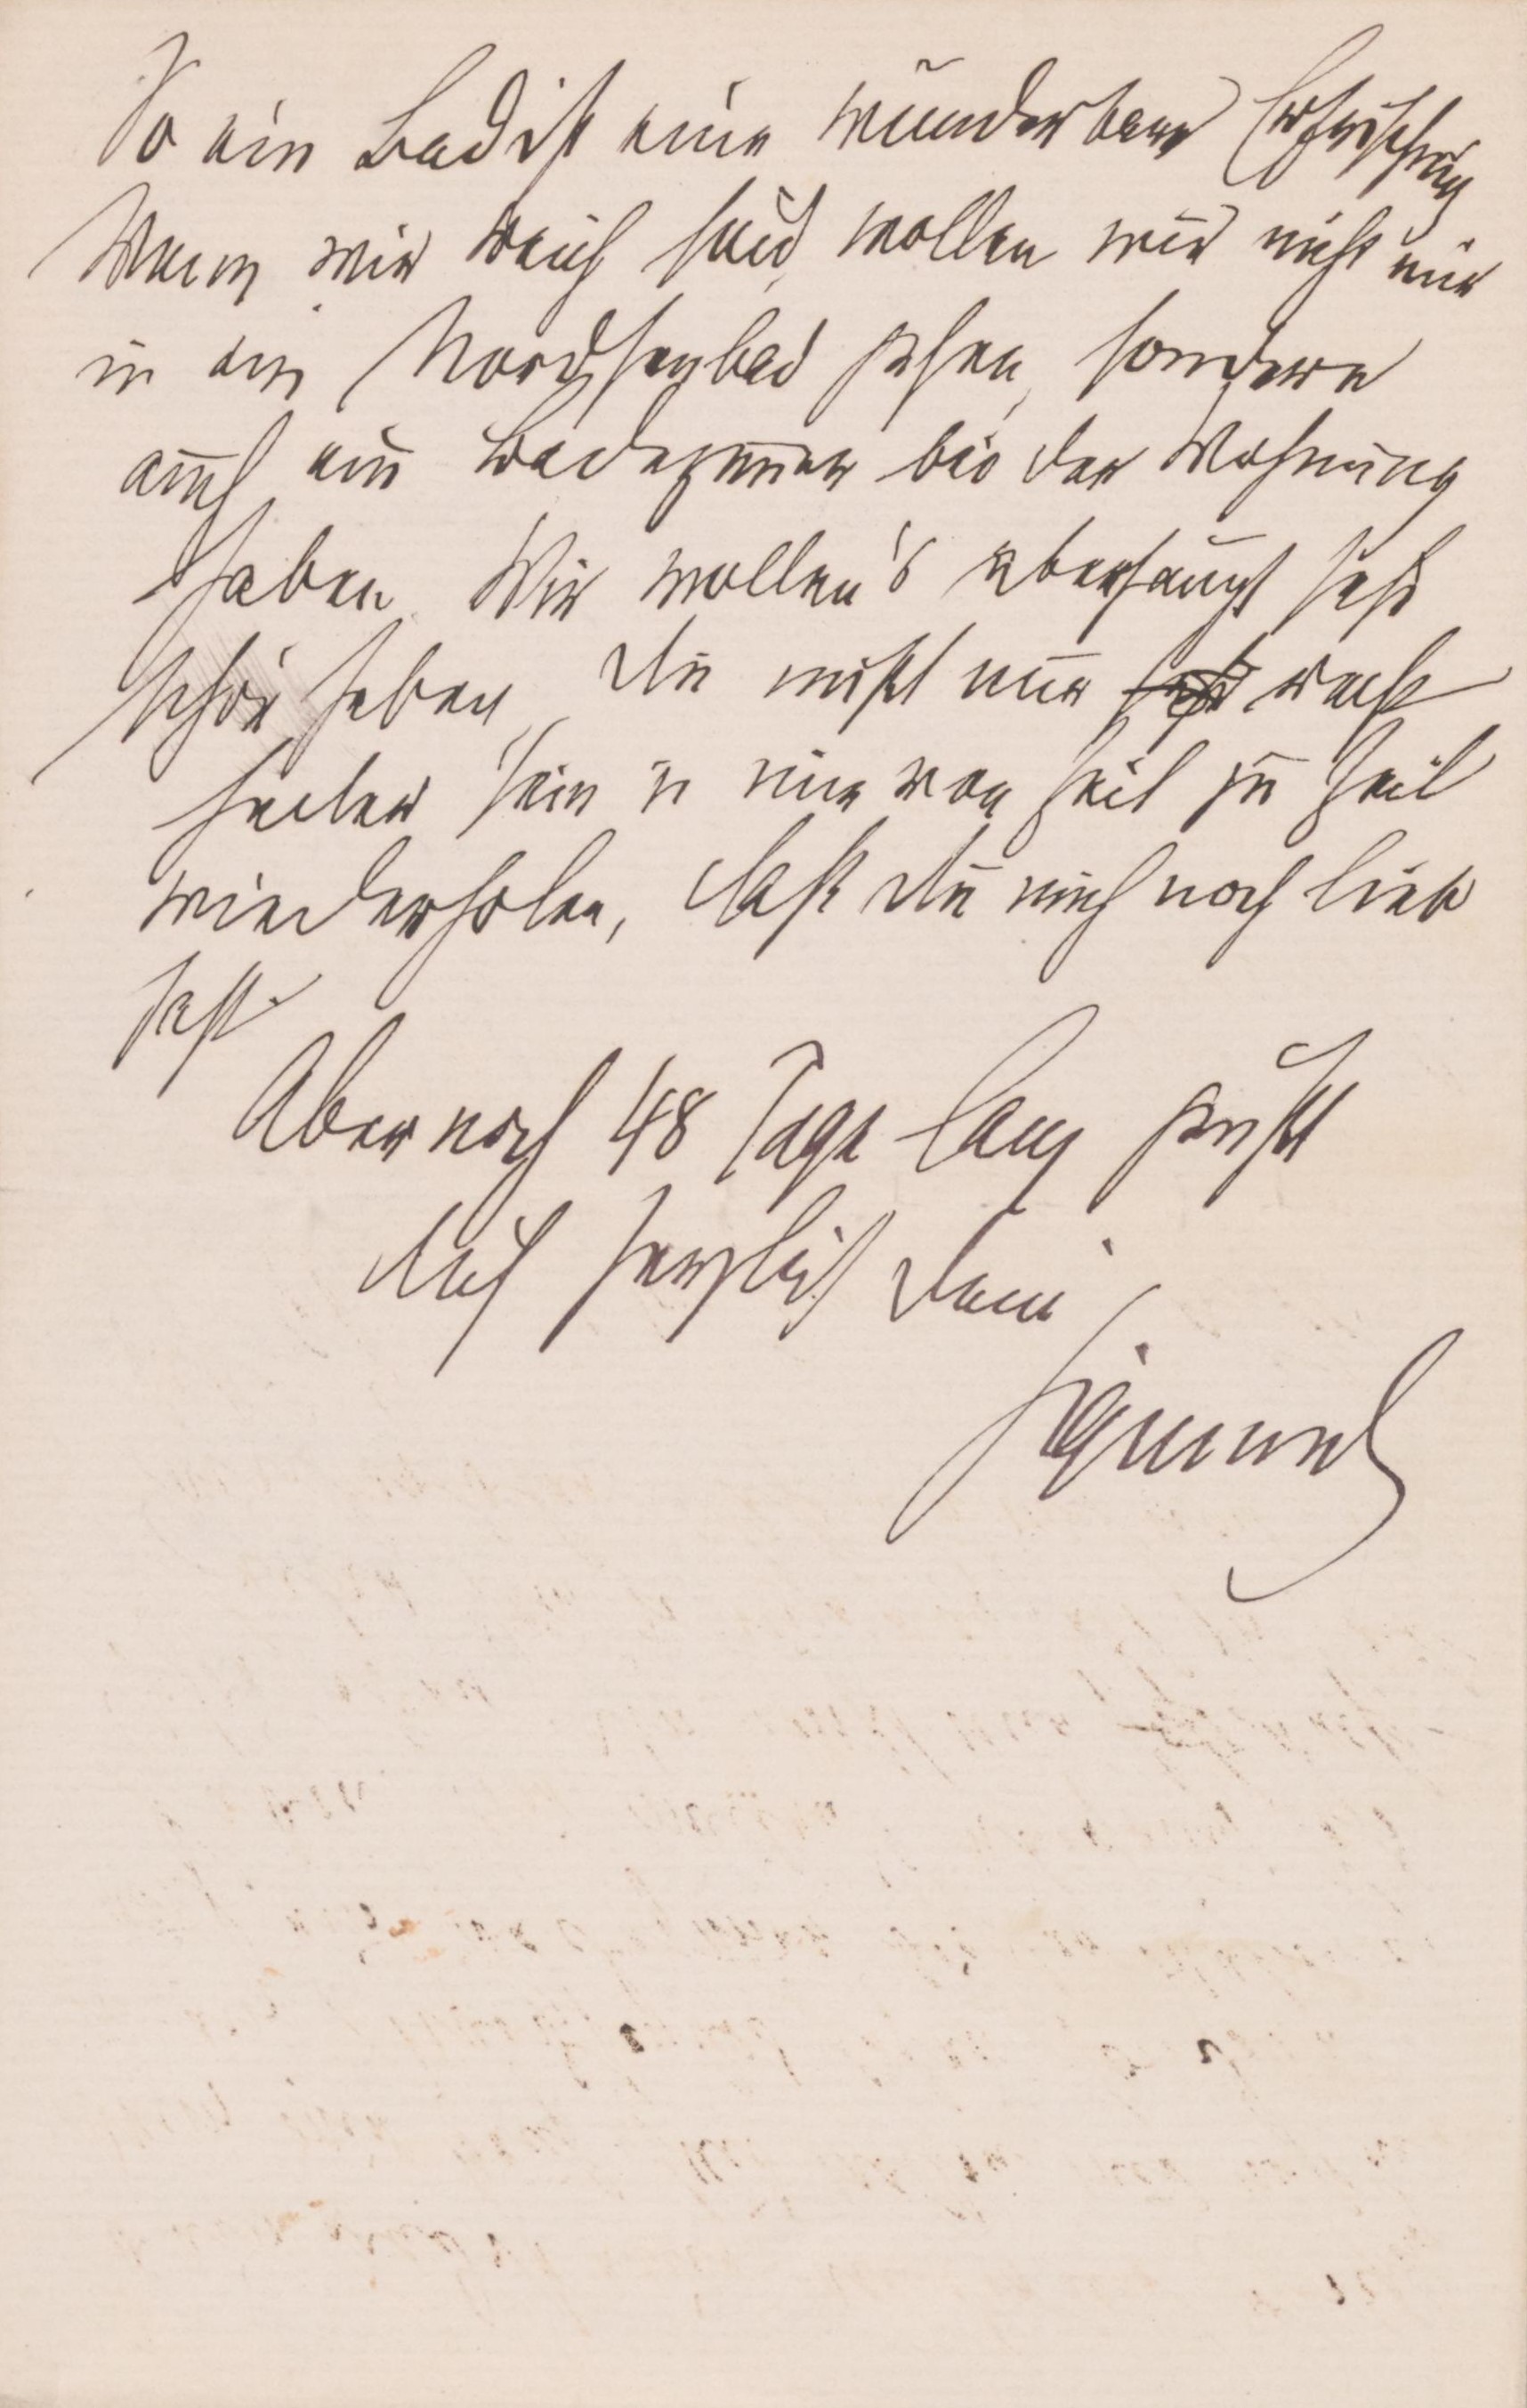 So ein Bad ist eine wunderbare Erfrischung
Wenn wir reich sind, wollen wir nicht nur
in ein Nordseebad gehen, sondern
auch ein Badezimmer bei der Wohnung
haben. Wir wollen's überhaupt sehr
schön haben, Du mußt nur sehr recht
heiter sein u mir von Zeit zu Zeit
wiederholen, daß Du mich noch lieb
hast.
Aber noch 48 Tage lang grüßt
Dich herzlich Dein
Sigmund